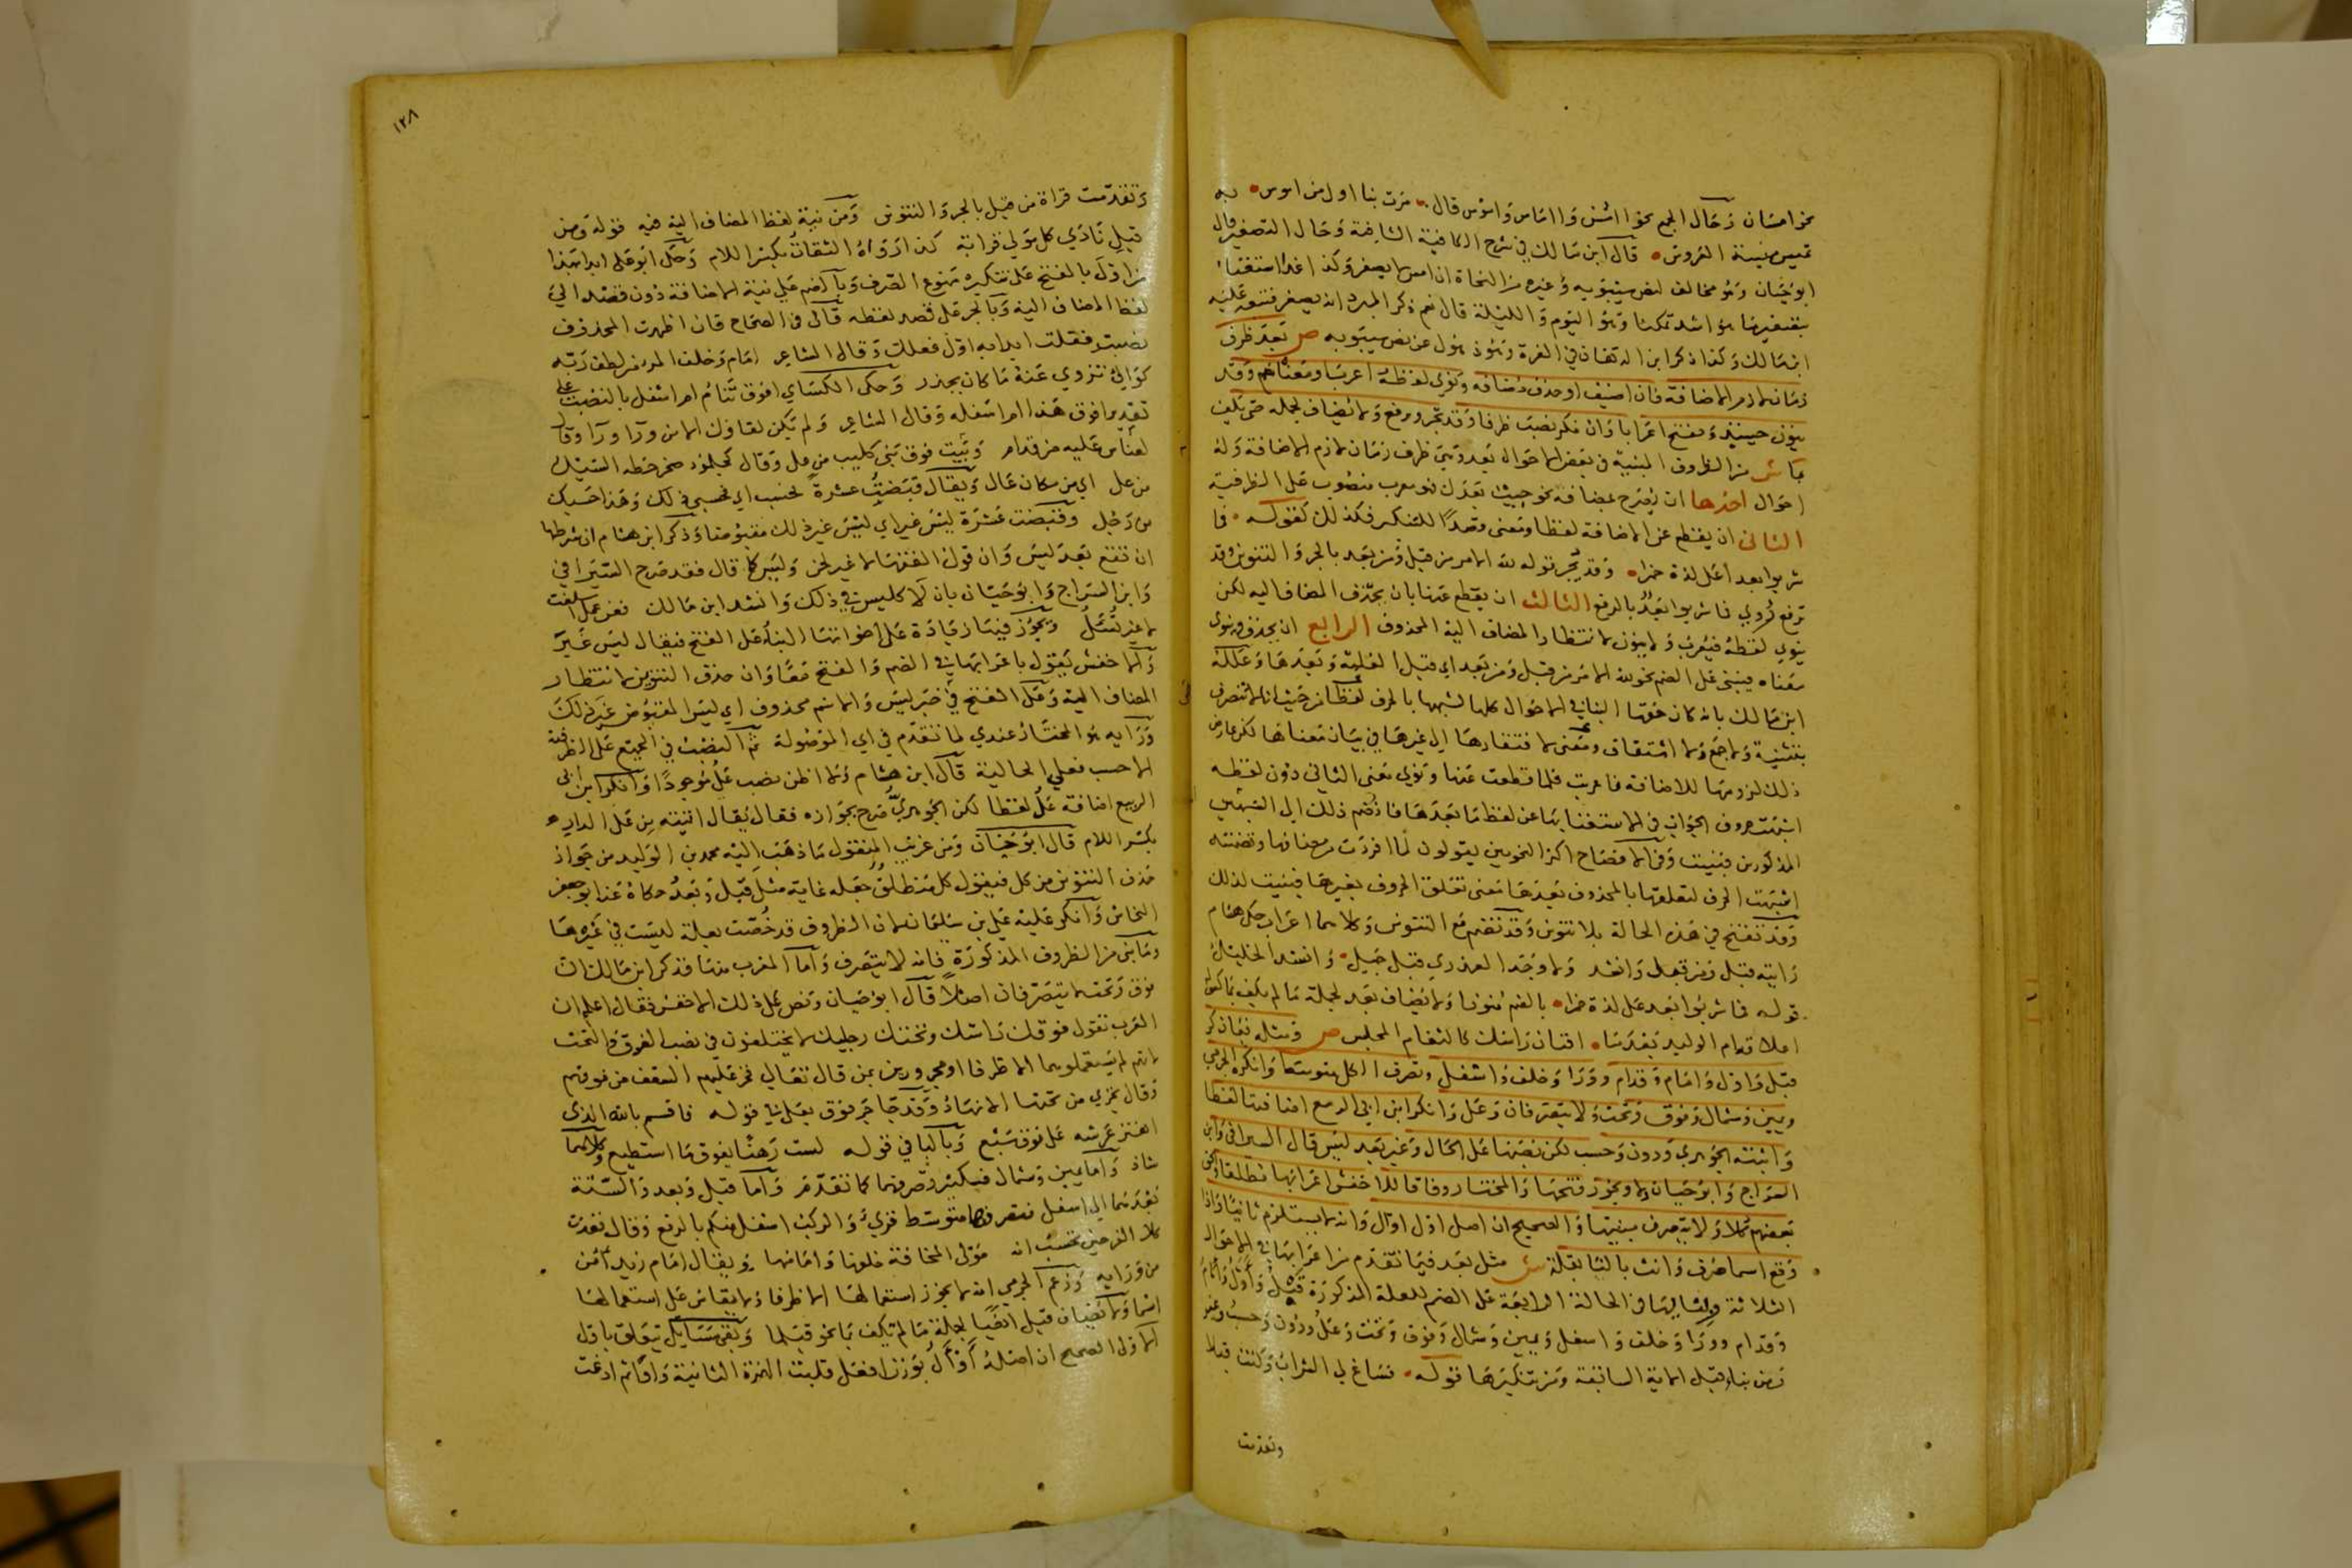 نحو امسان وحال الجمع نحو آمس وآماس واموس قال مرت بنا اول من اموس به
تميس ميسة العروس قال ابن مالك في شرح الكافية الشافية وحال التصغير قال
ابوحيان وهو مخالف لنص سيبويه وغيره من النحاة ان امس لا يصغر وكذا غد استغناء
بتصغيرهما هو اشد تمكنا وهو اليوم والليلة قال نعم ذكر المبرد انه يصغر فتبعه عليه
ابن مالك وكذا ذكر ابن الدهان في الغرة وهو ذهول عن نص سيبويه ص بعد ظرف
زمان لازم الاضافة فان اضيف او حذف مضافه ونوي لفظه اعرب او معناه ضم وقد
ينون حينئذ ويفتح اعرابا وان نكر نصب ظرفا وقد يجر ويرفع ولا يضاف لجملة حتى يكف
بما ش من الظروف المبنية في بعض الاحوال بعد وهي ظرف زمان لازم الاضافة وله
احوال احدها ان يصرح بمضافه نحو جيت بعدك فهو معرب منصوب على الظرفية
الثاني ان يقطع عن الاضافة لفظا ومعنى وقصدا للتنكير فكذلك كقوله فما
شربوا بعدا على لذة خمرا وقد يجر نحو لله الامر من قبل ومن بعد بالجر والتنوين وقد
ترفع روي فما شربوا بعد بالرفع الثالث ان يقطع عنها بان يحذف المضاف اليه لكن
ينوي لفظه فيعرب ولا ينون لانتظار المضاف اليه المحذوف الرابع ان يحذف وينوى
معناه فيبنى على الضم نحو لله الامر من قبل ومن بعد اي قبل الغلبة وبعدها وعلله
ابن مالك بانه كان حقها البنا في الاحوال كلها لشبهها بالحرف لفظا من حيث انها لا تتصرف
بتثنية ولا جمع ولا اشتقاق ومعنى لافتقارها الى غيرها في بيان معناها لكن عارض
ذلك لزومها للاضافة فاعربت فلما قطعت عنها ونوي معنى الثاني دون لفظه
اشبهت حروف الجواب في الاستغنا بها عن لفظ ما بعدها فانضم ذلك الى الشبهين
المذكورين فبنيت وفي الافصاح اكثر النحويين يقولون لما افردت من مضافها وتضمنته
اشبهت الحرف لتعلقها بالمحذوف بعدها معنى تعلق الحروف بغيرها فبنيت لذلك
وقد تفتح في هذه الحالة بلا تنوين وقد تضم مع التنوين وكلاهما اعراب حكى هشام
رايته قبل ومن قبل وانشد ولا وجد العذري قبل جميل وانشد الخليل
قوله فما شربوا بعد على لذة خمرا بالضم منونا ولا يضاف بعد لجملة ما لم يكف بما كقوله
اعلاقة ام الوليد بعدما افنان راسك كالثغام المخلس ص ومثله فيما ذكر
قبل واول وامام وقدام وورا وخلف واسفل وتصرف الكل متوسعا وانكره الجرمي
ويمين وشمال وفوق وتحت ولا يتصرفان وعل وانكر ابن ابي الربيع اضافتها لفظا
واثبته الجوهري ودون وحسب لكن نصبها على الحال وغير بعد ليس قال السيرافي وابن
السراج وابوحيان ولا ويجوز فتحها والمختار وفاقا للاخفش اعرابها مطلقا وعن
بعضهم كلا ولا يتصرف مبنيها والصحيح ان اصل اول اوأل وانه لا يستلزم ثانيا واذا
وقع اسما صرف وانث بالتا بقلة ش مثل بعد فيما تقدم من اعرابها في الاحوال
الثلاثة وبنائها في الحالة الرابعة على الضم للعلة المذكورة قبل واول وامام
وقدام وورا وخلف واسفل ويمين وشمال وفوق وتحت وعل ودون وحسب وغير
فمن بناء قبل الاية السابقة ومن تنكيرها قوله فساغ لي الشراب وكنت قبلا
وتقدمت
١٢٨
وتقدمت قراة من قبل بالجر والتنوين ومن نية لفظ المضاف اليه فيه قوله ومن
قبل نادى كل مولى قرابة كذا رواه الثقات بكسر اللام وحكى ابو على ابدا بهذا
من اول بالفتح على تنكيره ممنوع الصرف وبالضم على نية الاضافة دون قصد الى
لفظ المضاف اليه وبالجر على قصد لفظه قال في الصحاح فان اظهرت المحذوف
نصبت فقلت ابدا به اول فعلك وقال الشاعر امام وخلف المرء من لطف ربه
كوالئ تزوي عنه ما كان يحذر وحكى الكسائي افوق تنام ام اسفل بالنصب على
تقدير افوق هذا ام اسفله وقال الشاعر ولم يكن لقاؤك الا من وراء وراء وقال
لعنا من عليه من قدام وبيت فوق بني كليب من عل وقال كجلمود صخر حطه السيل
من عل اي من مكان عال ويقال قبضت عشرة فحسب اي فحسبي ذلك وهذا حسبك
من رجل وقبضت عشرة ليس غير اي ليس غير ذلك مقبوضا وذكر ابن هشام ان شرطها
ان تقع بعد ليس وان قول الفقهاء لا غير لحن وليس كما قال فقد صرح السيرافي
وابن السراج وابوحيان بان لا كليس في ذلك وانشد ابن مالك فعن عمل اسلفت
لا غير تسأل ويجوز فيها زيادة على اخواتها البناء على الفتح فيقال ليس غير
والاخفش يقول باعرابها في الضم والفتح معا وان حذف التنوين لانتظار
المضاف اليه ومحل الفتح في خبر ليس والاسم محذوف اي ليس المقبوض غير ذلك
ورايه هو المختار عندي لما تقدم في اي الموصولة ثم النصب في الجميع على الظرفية
الا حسب فعلى الحالية قال ابن هشام وما اظن نصب عل موجودا وانكر ابن ابي
الربيع اضافة عل لفظا لكن الجوهري صرح بجوازه فقال يقال اتيته من عل الدار
بكسر اللام قال ابوحيان ومن غريب المنقول ما ذهب اليه محمد بن الوليد من جواز
حذف التنوين من كل فيقول كل منطلق جعله غاية مثل قبل وبعد حكاه عنه ابو جعفر
النحاس وانكر عليه علي بن سليمان لان الظروف قد خصت بعلة ليست في غيرها
وما بني من الظروف المذكورة فانه لا يتصرف واما المعرب منها فذكر ابن مالك ان
فوق وتحت لا يتصرفان اصلا قال ابوحيان ونص على ذلك الاخفش فقال اعلم ان
العرب تقول فوقك راسك وتحتك رجليك لا يختلفون في نصب الفوق والتحت
لانهم لم يستعملوهما الا ظرفا او مجرورين بمن قال تعالى فخر عليهم السقف من فوقهم
وقال تجري من تحتها الانهار وقد جا جر فوق بعلى في قوله فاقسم بالله الذي
اهتز عرشه على فوق سبع وبالبا في قوله لست رهنا بفوق ما استطيع وكلاهما
شاذ واما يمين وشمال فيكثر تصرفهما كما تقدم واما قبل وبعد والستة
بعدهما الى اسفل فتصرفها متوسط قري والركب اسفل منكم بالرفع وقال فغدت
كلا الفرجين تحسب انه مولى المخافة خلفها وامامها ويقال امام زيد امن
من ورايه وزعم الجرمي انه لا يجوز استعمالها الا ظرفا ولا يقاس على استعمالها
اسما ولا يضاف قبل ايضا لجملة ما لم يكف بما نحو قبلما وبقي مسايل تتعلق باول
الاول الصحيح ان اصله أوأل بوزن افعل قلبت الهمزة الثانية واوا ثم ادغمت